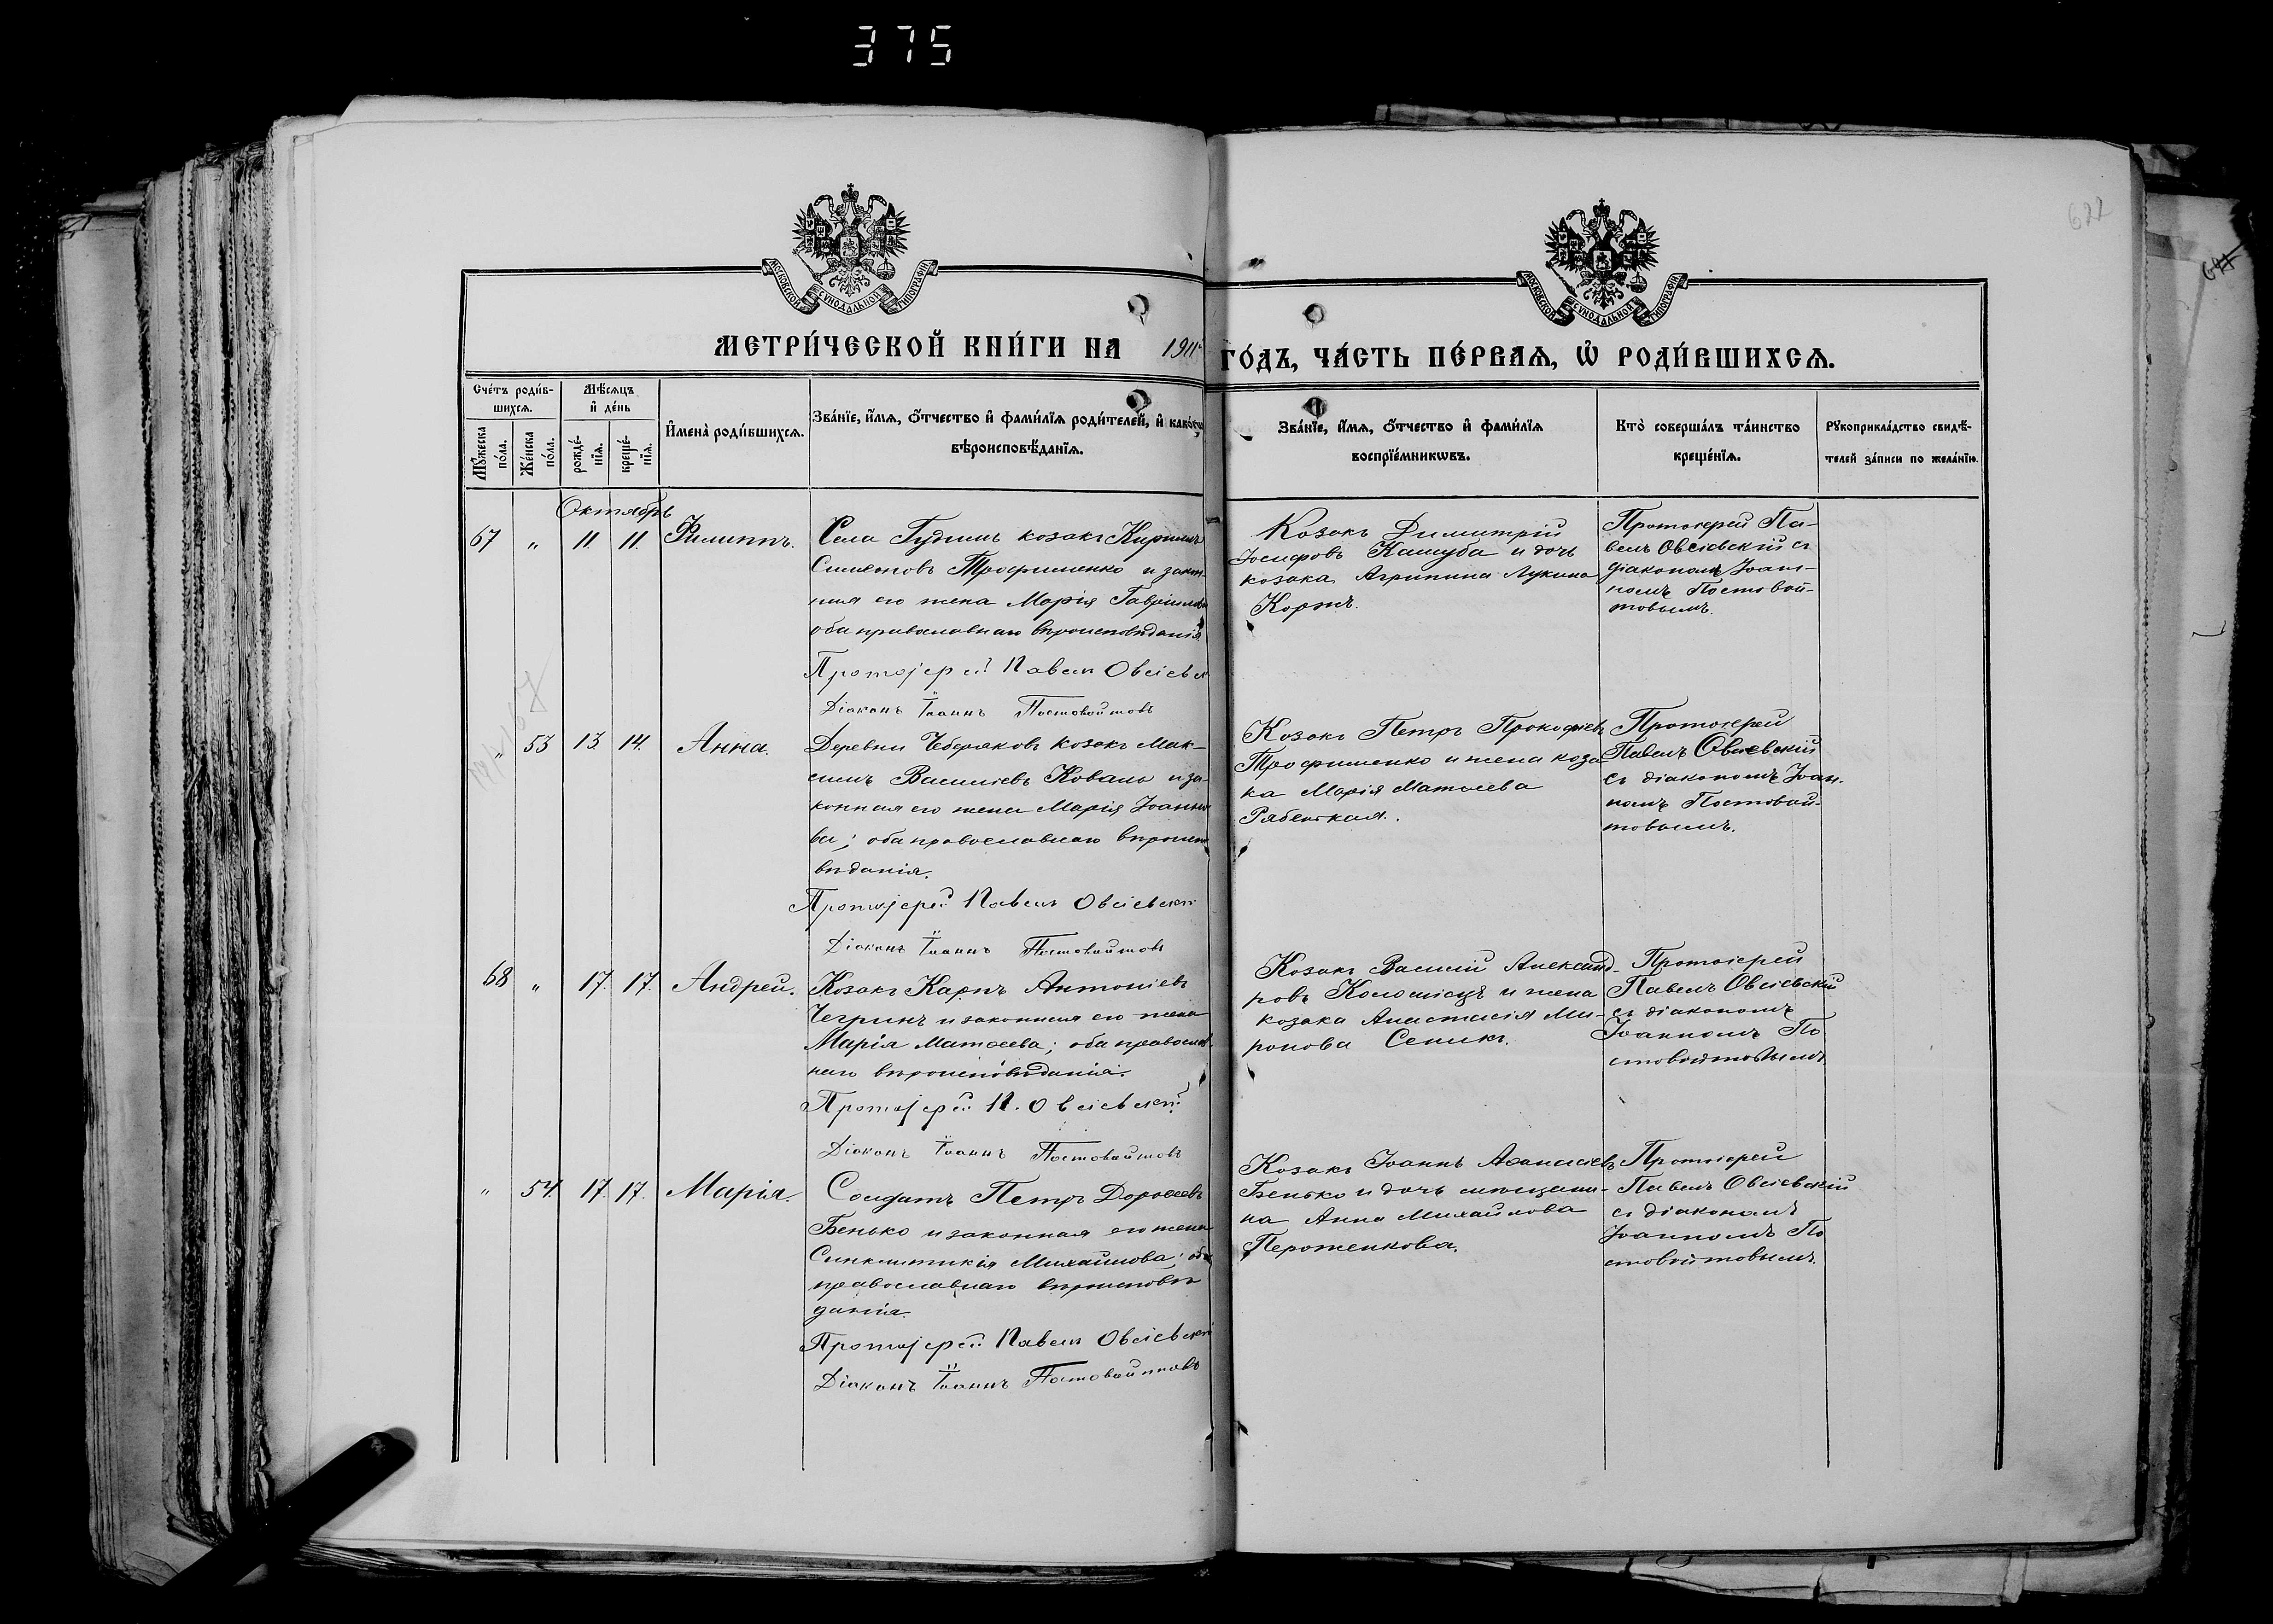 375
622
МОСКОВСКОЙ СѴНОДАЛЬНОЙ ТИПОГРАФІИ
МОСКОВСКОЙ СѴНОДАЛЬНОЙ ТИПОГРАФІИ
МЕТРИ́ЧЕСКОЙ КНИ́ГИ НА 1911 ГО́ДЪ, ЧА́СТЬ ПЕ́РВАЯ, Ѡ҆ РОДИ́ВШИХСѦ.
Сче́тъ роди́в-
шихсѧ.
Мѹ́жеска
по́ла.
Же́нска
по́ла.
Мѣ́сѧцъ
и҆ де́нь
рожде́-
нїѧ.
креще́-
нїѧ.
И҆мена̀ роди́вшихсѧ.
Зва́нїе, и҆́мѧ, ѻ҆́тчество и҆ фами́лїѧ роди́телей, и҆ како́гѡ
вѣроисповѣ́данїѧ.
Зва́нїе, и҆́мѧ, ѻ҆́тчество и҆ фами́лїѧ
воспрїе́мникѡвъ.
Кто̀ соверша́лъ та́инство
креще́нїѧ.
Рѹкоприкла́дство свидѣ́-
телей за́писи по жела́нїю.
Октябрь
67 " 11. 11. Филиппъ.
Села козакъ Кириллъ
Симеоновъ Трофименко и закон-
ная его жена Марія Гавріилова
оба православнаго вѣроисповѣданія
Протоіерей Павелъ Овсіевск
Діаконъ Іоаннъ Постовойтовъ
Козакъ Димитрій
Іосифовъ Кашуба и дочь
козака Агрипина Лукина
Коржъ.
Протоіерей Па-
велъ Овсіевскій съ
діакономъ Іоан-
номъ Постовой-
товымъ.
" 53 13 14. Анна.
Деревни козакъ Мак-
симъ Василіевъ Коваль и за-
конная его жена Марія Іоанно
ва; оба православнаго вѣроиспо
вѣданія.
Протоіерей Павелъ Овсіевскій
Діаконъ Іоаннъ Постовойтовъ
Козакъ Петръ Прокофіевъ
Трофименко и жена коза
ка Марія Матѳеева
Протоіерей
Павелъ Овсіевскій
съ діакономъ Іоан-
номъ Постовой-
товымъ.
68 " 17. 17. Андрей.
Козакъ Карпъ Антоніевъ
Чегринъ и законная его жена
Марія Матѳеева; оба православ-
наго вѣроисповѣданія.
Протоіерей П. Овсіевскій
Діаконъ Іоаннъ Постовойтовъ
Козакъ Василій Александ-
ровъ Коломіецъ и жена
козака Анастасія Ми-
ронова Сеникъ.
Протоіерей
Павелъ Овсіевскій
съ діакономъ
Іоанномъ По
стовойтовымъ.
" 54 17. 17. Марія.
Солдатъ Петръ Дороѳеевъ
Бенько и законная его жена
Синклитикія Михайлова; оба
православнаго вѣроисповѣ
данія.
Протоіерей Павелъ Овсіевскій
Діаконъ Іоаннъ Постовойтовъ
Козакъ Іоаннъ Аѳанасіевъ
Бенько и дочь мѣщани-
на Анна Михайлова
Протоіерей
Павелъ Овсіевскій
съ діакономъ
Іоанномъ По
стовойтовымъ.